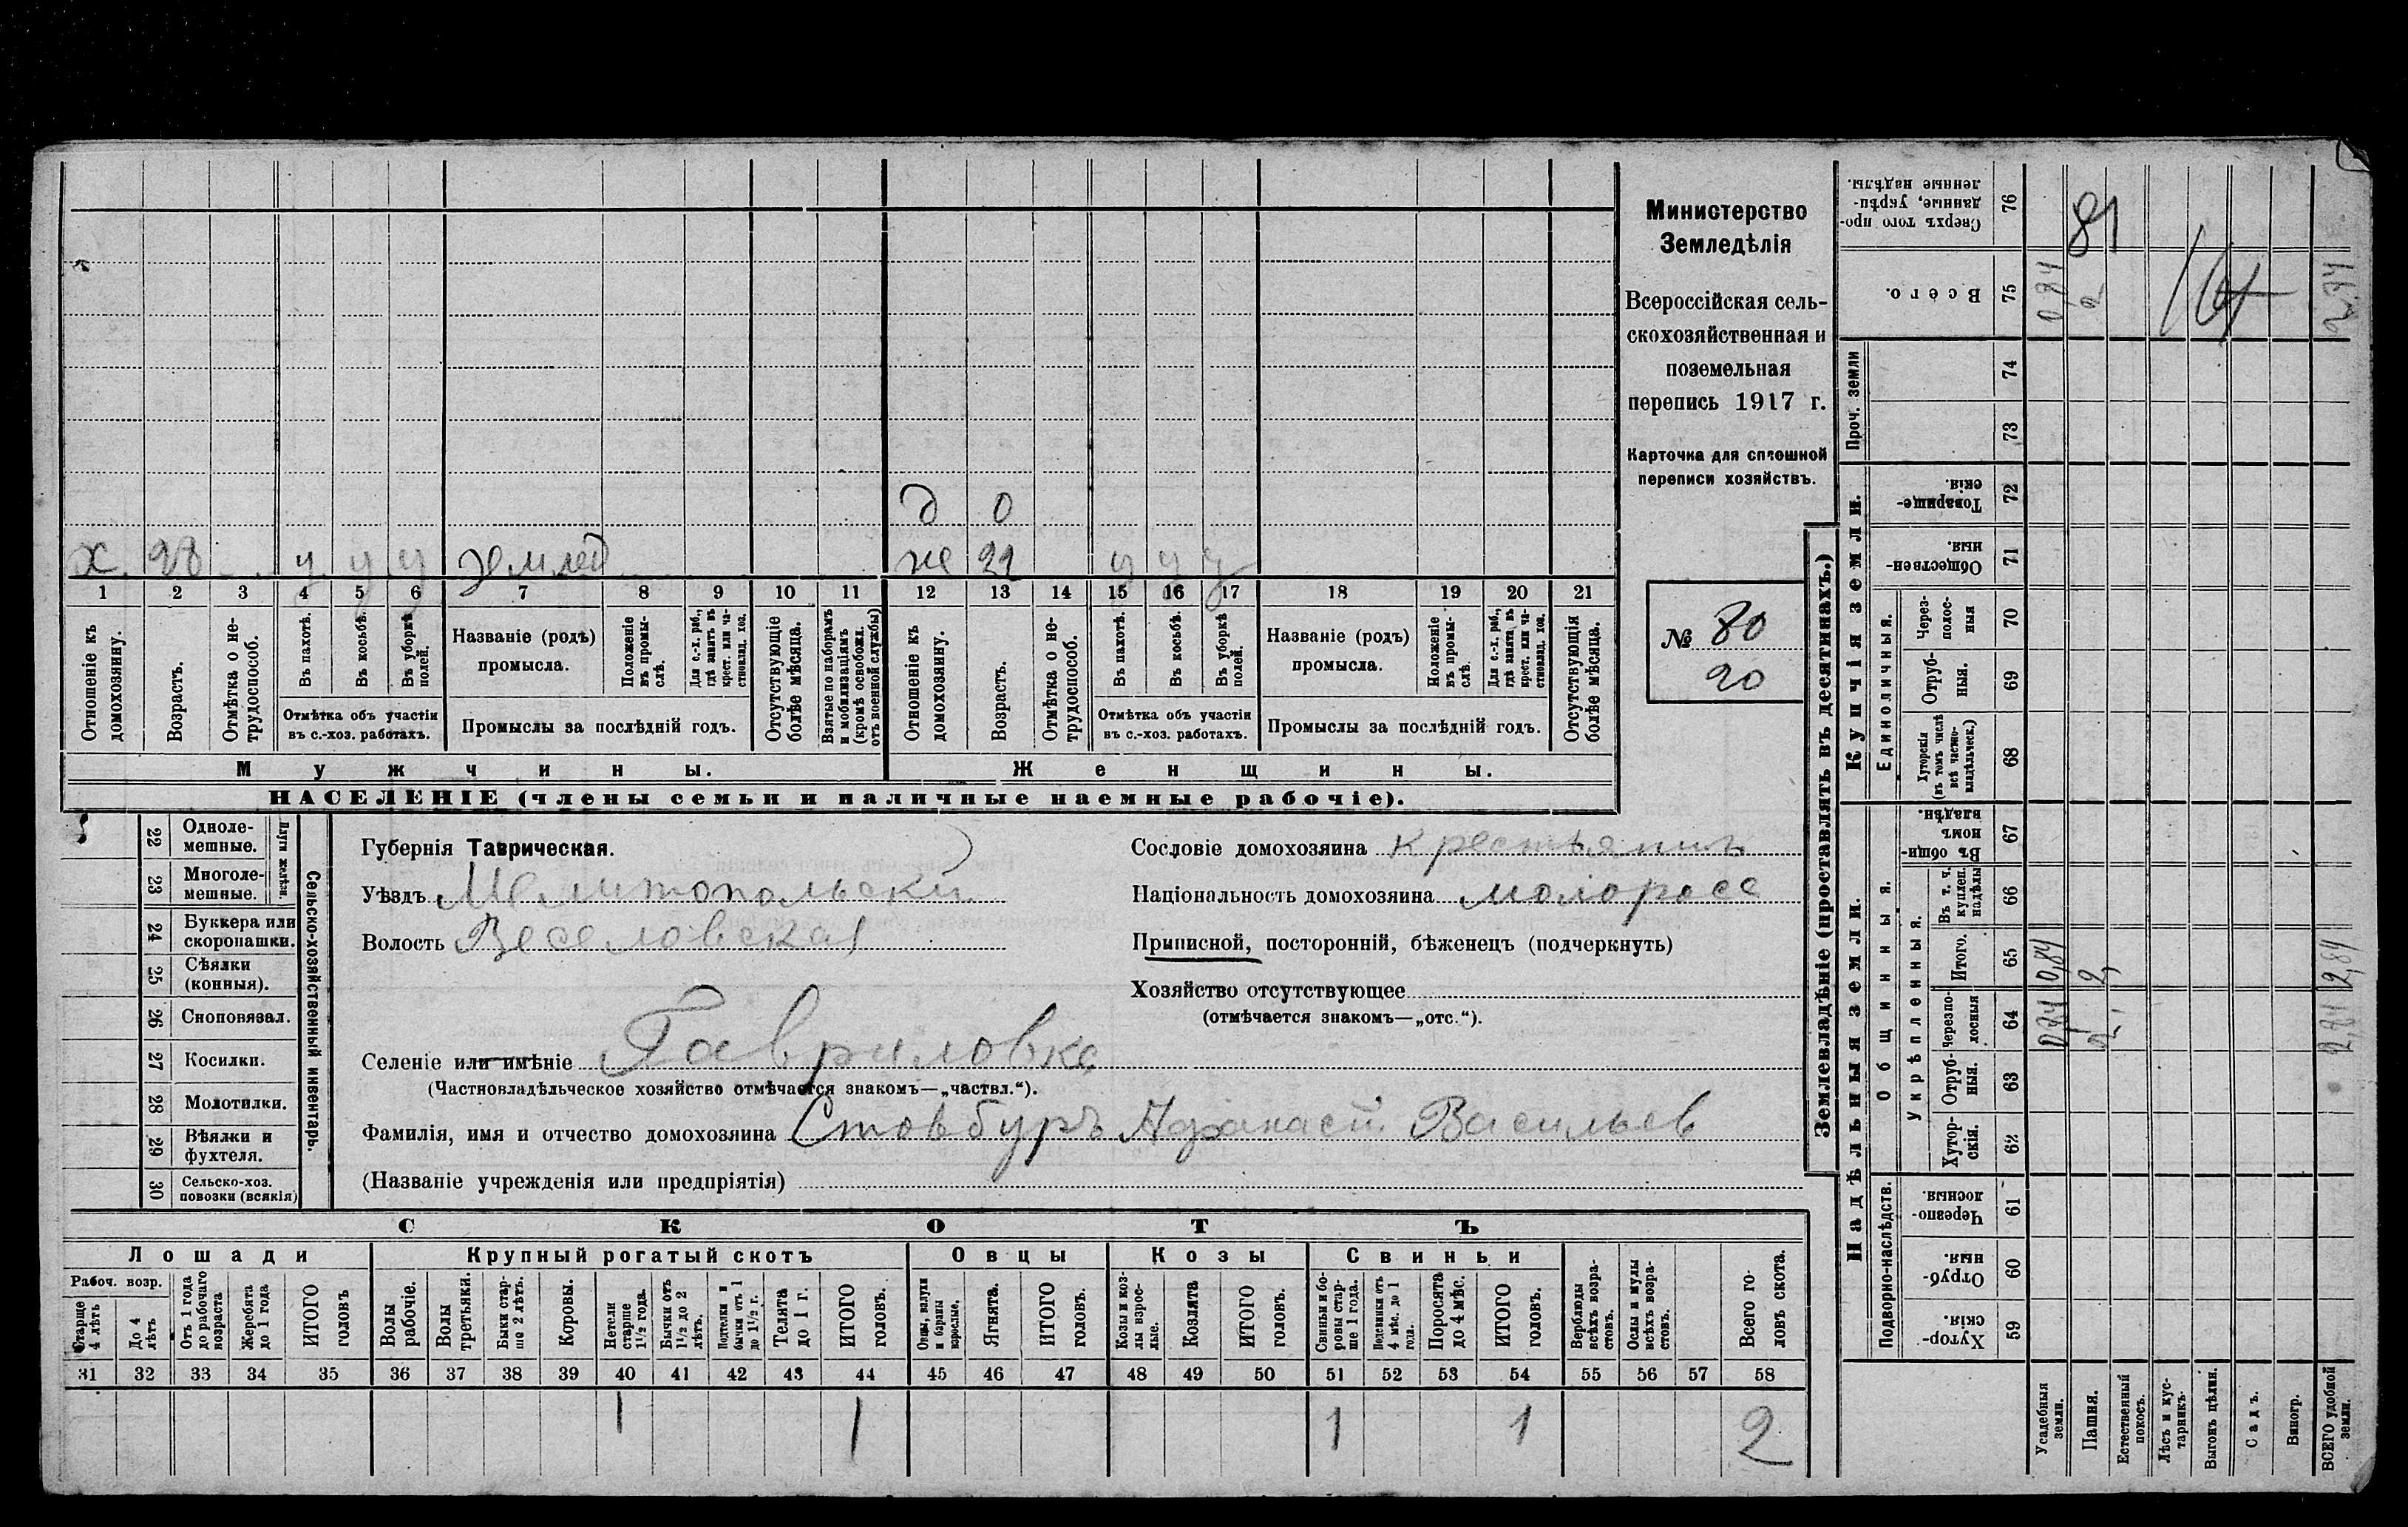 Министерство
Земледѣлія
Всероссійская сель-
скохозяйственная и
поземельная
перепись 1917 г.
Карточка для сплошной
переписи хозяйствъ.
№ 80
20
д 0
х 28 у у у землед
ж 22 у у у
1 2 3 4 5 6 7 8 9 10 11 12 13 14 15 16 17 18 19 20 21
Отношеніе къ домохозяину.
Возрастъ.
Отмѣтка о не-трудоспособ.
Въ пахотѣ.
Въ косьбѣ.
Въ уборкѣ полей.
Отмѣтка объ участіи
въ с.-хоз. работахъ.
Названіе (родъ)
промысла.
Положеніе въ промы-слѣ.
Для с.-х. раб., гдѣ занятъ въ крест. или ча-стновлад. хоз.
Промыслы за послѣдній годъ.
Отсутствующіе болѣе мѣсяца.
Взятые по наборамъ и мобилизаціямъ (кромѣ освобожд. отъ военной службы)
Отношеніе къ домохозяину.
Возрастъ.
Отмѣтка о не-трудоспособ.
Въ пахотѣ.
Въ косьбѣ.
Въ уборкѣ полей.
Отмѣтка объ участіи
въ с.-хоз. работахъ.
Названіе (родъ)
промысла.
Положеніе въ промы-слѣ.
Для с.-х. раб., гдѣ занята въ крест. или ча-стновлад. хоз.
Промыслы за послѣдній годъ.
Отсутствующія болѣе мѣсяца.
Мужчины.
Женщины.
НАСЕЛЕНІЕ (члены семьи и наличные наемные рабочіе).
22 Одноле-мешные.
23 Многоле-мешные.
Плуги желѣзн.
24 Буккера или скоропашки.
25 Сѣялки (конныя).
26 Сноповязал.
27 Косилки.
28 Молотилки.
29 Вѣялки и фухтеля.
30 Сельско-хоз. повозки (всякія)
Сельско-хозяйственный инвентарь.
Губернія Таврическая.
Уѣздъ Мелитопольский
Волость Веселовская
Сословіе домохозяина крестьянинъ
Національность домохозяина молоросс
Приписной, посторонній, бѣженецъ (подчеркнуть)
Хозяйство отсутствующее
(отмѣчается знакомъ—„отс.“).
Селеніе или имѣніе Гавриловка
(Частновладѣльческое хозяйство отмѣчается знакомъ—„частвл.“).
Фамилія, имя и отчество домохозяина Стовбуръ Афанасій Васильев
(Названіе учрежденія или предпріятія)
СКОТЪ
Лошади Крупный рогатый скотъ Овцы Козы Свиньи
Рабоч. возр.
Старше 4 лѣтъ
До 4 лѣтъ
Отъ 1 года до рабочаго возраста
Жеребята до 1 года
ИТОГО головъ
Волы рабочіе.
Волы третьяки.
Быки стар-ше 2 лѣтъ.
Коровы.
Нетели старше 1½ года.
Бычки отъ 1½ до 2 лѣтъ.
Подтелки и бычки отъ 1 до 1½ г.
Телята до 1 г.
ИТОГО головъ.
Овцы, валухи и бараны взрослые.
Ягнята.
ИТОГО головъ.
Козы и коз-лы взрос-лые.
Козлята
ИТОГО головъ.
Свиньи и бо-ровы стар-ше 1 года.
Подсвинки отъ 4 мѣс. до 1 года.
Поросята до 4 мѣс.
ИТОГО головъ.
Верблюды всѣхъ возра-стовъ.
Ослы и мулы всѣхъ возра-стовъ.
Всего го-ловъ скота.
31 32 33 34 35 36 37 38 39 40 41 42 43 44 45 46 47 48 49 50 51 52 53 54 55 56 57 58
1 1 1 1 2
Землевладѣніе (проставлять въ десятинахъ.)
Надѣльныя земли.
Купчія земли.
Проч. земли
Подворно-наслѣдств.
Общинныя.
Укрѣпленныя.
Единоличныя.
Хутор-скія. 59
Отруб-ныя. 60
Черезпо-лосныя. 61
Хутор-скія. 62
Отруб-ныя. 63
Черезпо-лосныя 64
Итого. 65
Въ т. ч. куплен. надѣлы 66
Въ общин-номъ владѣн. 67
Хуторскія (въ томъ числѣ всѣ частно-владѣльческ.) 68
Отруб-ныя. 69
Через-полос-ныя 70
Обществен-ныя. 71
Товарище-скія. 72
73
74
Всего. 75
Сверхъ того про-данные, укрѣп-ленные надѣлы. 76
Усадебныя земли.
Пашня.
Естественный покосъ.
Лѣсъ и кус-тарникъ.
Выгонъ цѣлин.
Садъ.
Виногр.
ВСЕГО удобной земли.
0,84 0,84 0,84
2, 2, 2
2,84 2,84 2,84
81